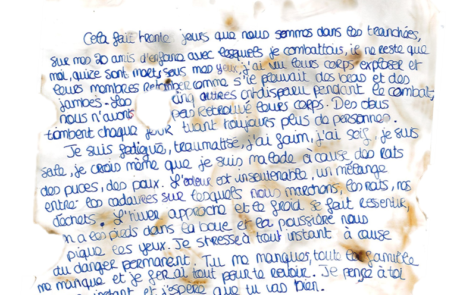 Cela fait trente jours que nous sommes dans les tranchées,
sur mes 20 amis d'enfance avec lesquels je combattais, il ne reste que
moi, quize sont morts sous mes yeux, j'ai vu leurs corps exploser et
leurs membres retomber comme s'il pleuvait des bras et des
jambes. Les cinq autres ont disparu pendant le combat,
nous n'avons pas retrouvé leurs corps. Des obus
tombent chaque jour tuant toujours plus de personnes.
Je suis fatigué, traumatisé, j'ai faim, j'ai soif, je suis
sale, je crois même que je suis malade à cause des rats
des puces, des poux. L'odeur est insoutenable, un mélange
entre les cadavres sur lesquels nous marchons, les rats, nos
déchets. L'hiver approche et le froid se fait ressentir,
on a les pieds dans la boue et la poussière nous
pique les yeux. Je stresse à tout instant à cause
du danger permanent. Tu me manques, toute la famille
me manque et je ferai tout pour te revoir. Je pense à toi
instant et j'espère que tu vas bien.